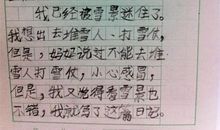 我已经被雪景迷住了。
我想出去堆雪人、打雪仗,
但是,妈妈说过不能去堆
雪人打雪仗,小心感冒,
但是,我又觉得看雪景也
不错,我就写了这篇日记。